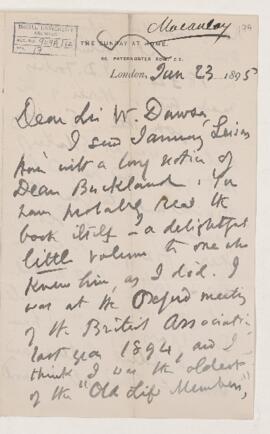 Macaulay
McGILL UNIVERSITY
ARCHIVES
ACC. NO.
THE SUNDAY AT HOME,
56, PATERNOSTER ROW, E.C.
London, Jan 23 1895
Dear Sir W. Dawson
I send January Leisure
Hour with a long notice of
Dean Buckland. You
have probably read the
book itself – a delightful
little volume to one who
knew him, as I did. I
was at the Oxford meeting
of the British Association
last year 1894, and I
think I was the oldest
of the "Old Life Members",